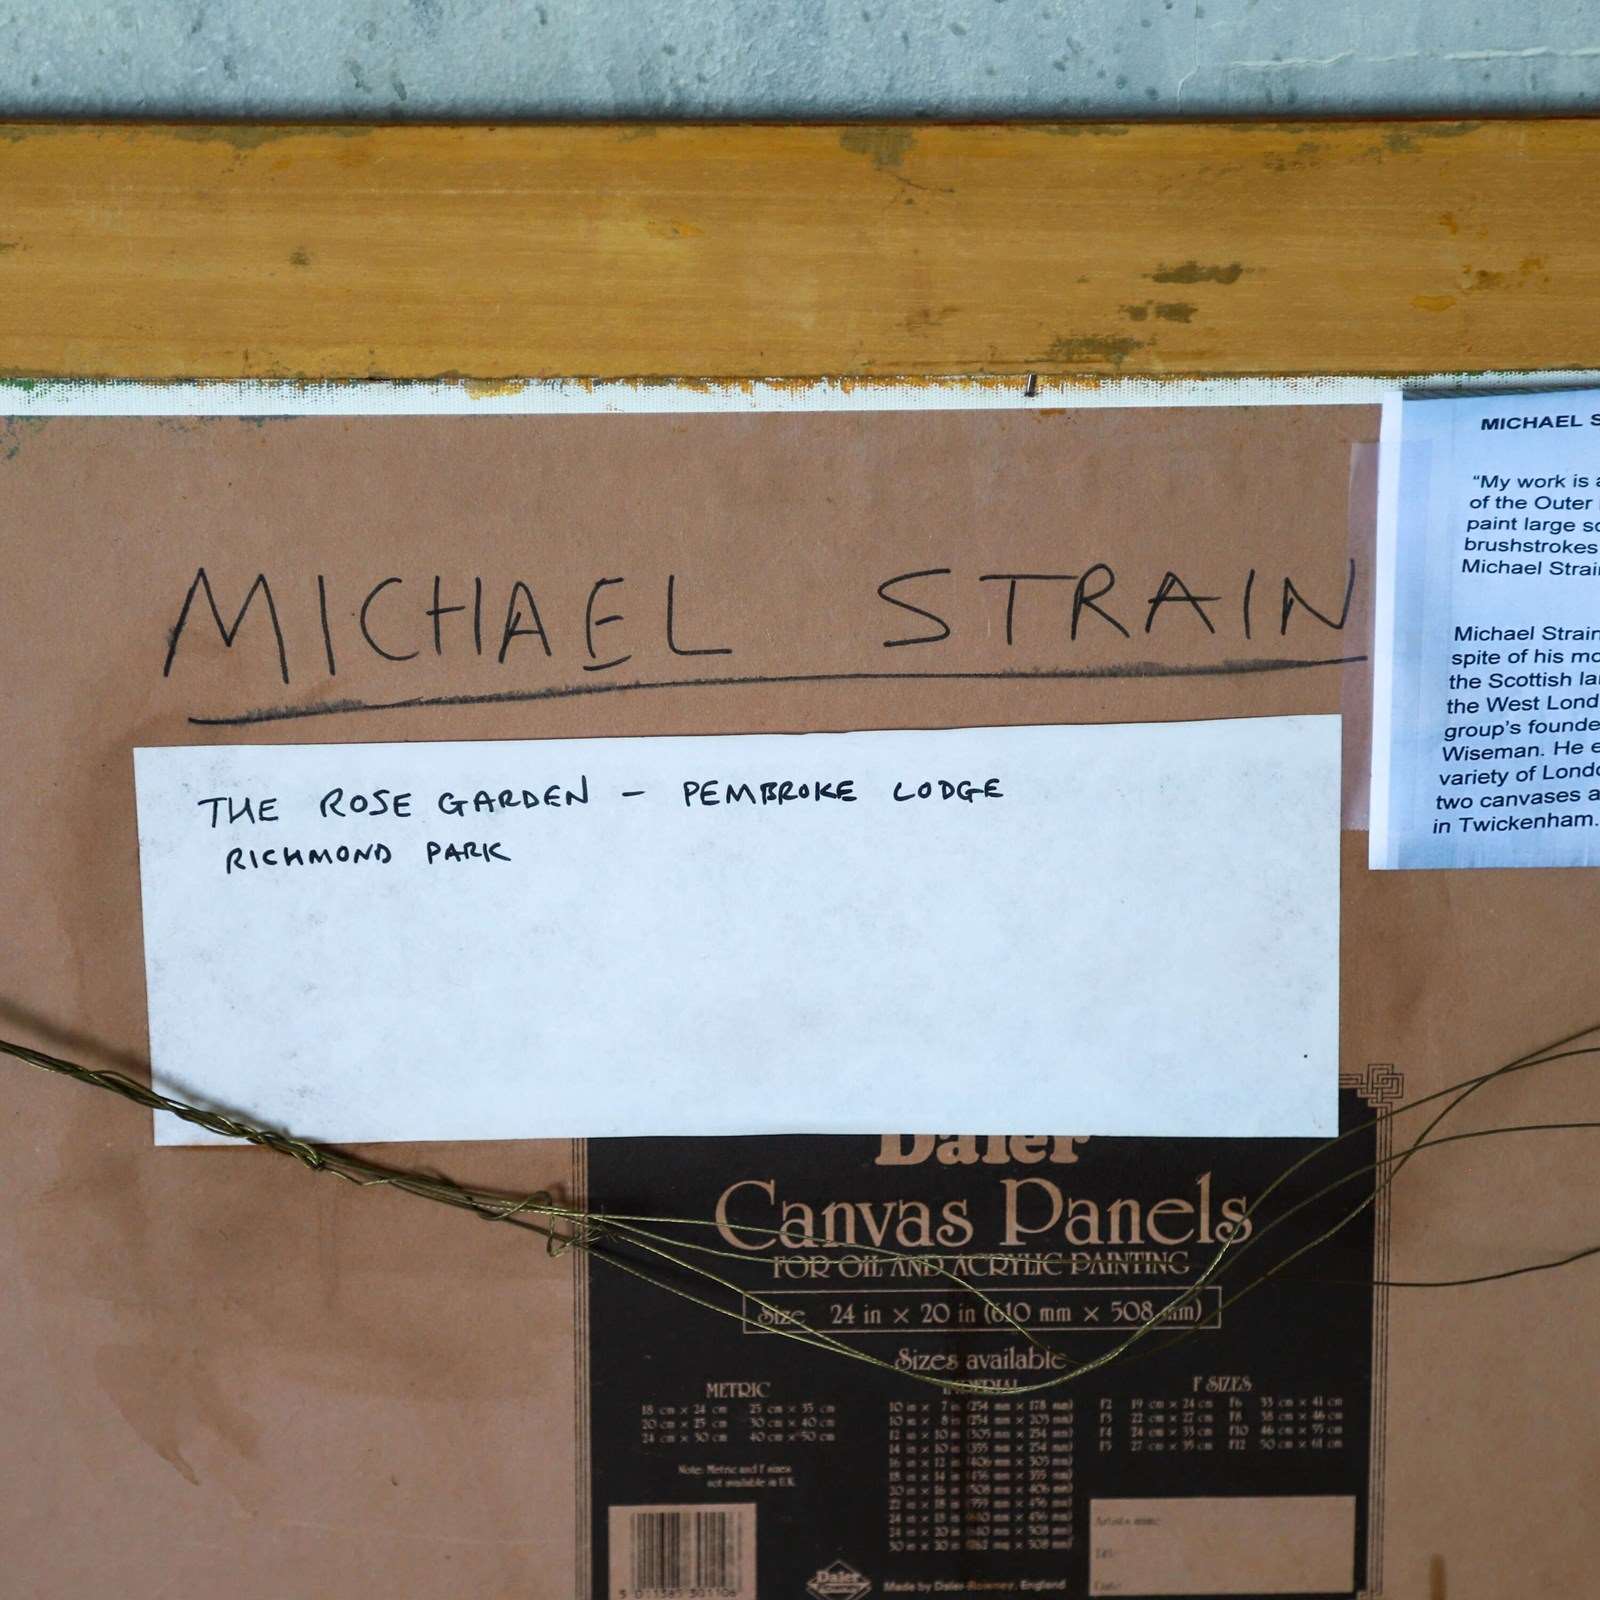 MICHAEL STRAIN
THE ROSE GARDEN - PEMBROKE LODGE
RICHMOND PARK
MICHAEL
"My work is
of the Outer
paint large
brushstrokes
Michael
Michael Strain
spite of his
the Scottish
the West
group's
Wiseman. He
variety of
two canvases
in Twickenham.
Daler
Canvas Panels
FOR OIL AND ACRYLIC PAINTING
Size 24 in × 20 in (610 mm × 508 mm)
Sizes available
METRIC
18 cm × 24 cm 25 cm × 35 cm
20 cm × 25 cm 30 cm × 40 cm
24 cm × 30 cm 40 cm × 50 cm
Note: Metric and F sizes
not available in U.K.
IMPERIAL
10 in × 7 in (254 mm × 178 mm)
10 in × 8 in (254 mm × 203 mm)
12 in × 10 in (305 mm × 254 mm)
14 in × 10 in (355 mm × 254 mm)
16 in × 12 in (406 mm × 305 mm)
18 in × 14 in (456 mm × 355 mm)
20 in × 16 in (508 mm × 406 mm)
22 in × 18 in (559 mm × 456 mm)
24 in × 18 in (610 mm × 456 mm)
24 in × 20 in (610 mm × 508 mm)
30 in × 20 in (762 mm × 508 mm)
F SIZES
F2 19 cm × 24 cm F6 33 cm × 41 cm
F3 22 cm × 27 cm F8 38 cm × 46 cm
F4 24 cm × 33 cm F10 46 cm × 55 cm
F5 27 cm × 35 cm F12 50 cm × 61 cm
Artist's name
Daler
Made by Daler-Rowney, England